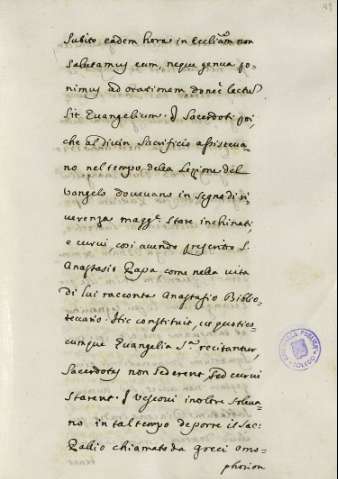 Subito, eadem hora in Eccliam non
salutamus eum, neque genua po-
nimus ad orationem, donec lectus
sit Evangelium. I Sacerdoti poi,
che al divin Sacrificio assisteva-
no nel tempo della Lezione del
Vangelo dovevano in segno di ri-
verenza magg.e stare inchinati,
e curvi, così avendo prescritto S.
Anastasio Papa come nella vita
di lui racconta Anastasio Biblio-
tecario. Hic constituit, ut quoties-
cumque Evangelia S.ta recitantur,
Sacerdotes non sederent, sed curvi
starent. I Vescovi inoltre soleva-
no in tal tempo deporre il Sac:
Pallio chiamato da greci omo-
phorion